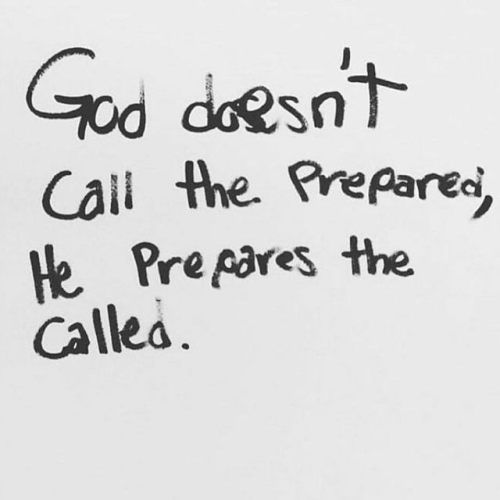 God doesn't
Call the Prepared,
He Prepares the
Called.